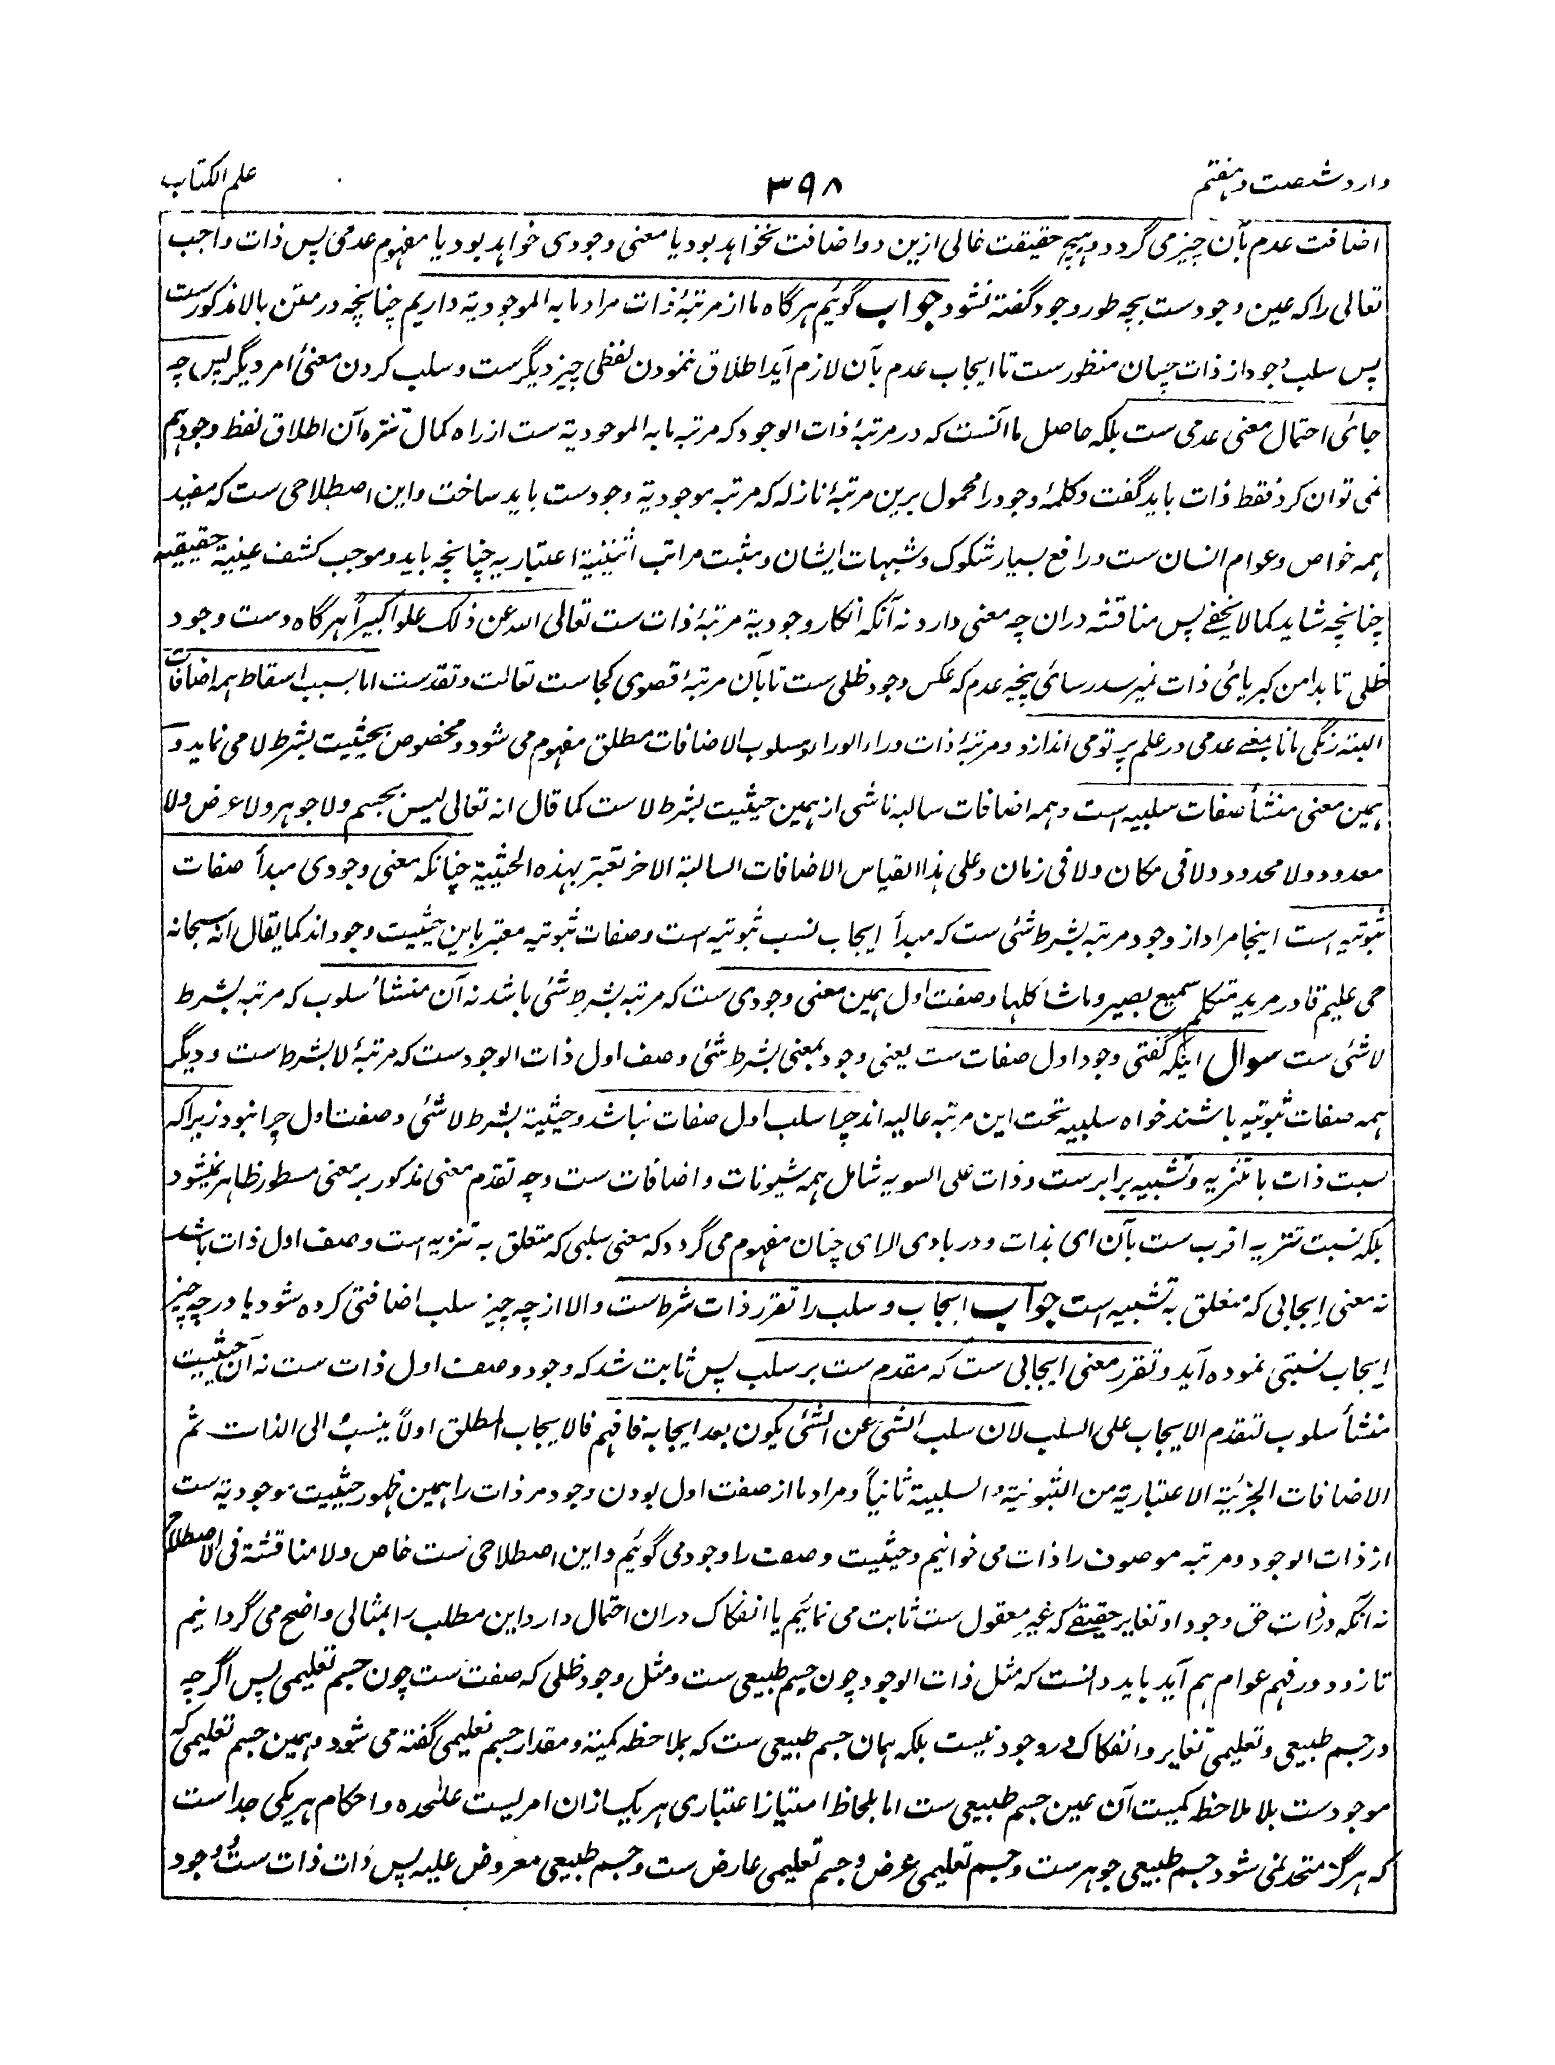 وارد شصت و هفتم
۳۹۸
علم الکتاب
اضافت عدم بآن چیز می گردد و هیچ حقیقت خالی ازین دو اضافت نخواهد بود یا معنی وجودی خواهد بود یا مفهوم عدمی پس ذات واجب
تعالی را که عین وجودست بچه طور وجود گفته نشود جواب گوئیم هرگاه ما از مرتبۀ ذات مراد ما به الموجودیة داریم چنانچه در متن بالا مذکورست
پس سلب وجود از ذات چسان منظورست تا ایجاب عدم بآن لازم آید اطلاق ننمودن لفظی چیز دیگرست و سلب کردن معنیٔ امر دیگر پس چه
جائی احتمال معنی عدمی ست بلکه حاصل ما آنست که در مرتبۀ ذات الوجود که مرتبه ما به الموجودیة ست از راه کمال تنزه آن اطلاق لفظ وجود هم
نمی توان کرد فقط ذات باید گفت و کلمۀ وجود را محمول برین مرتبۀ نازله که مرتبه موجودیة وجودست باید ساخت و این اصطلاحی ست که مفید
همه خواص و عوام انسان ست و رافع بسیار شکوک و شبهات ایشان و مثبت مراتب اثنینیة اعتباریه چنانچه باید و موجب کشف عینیة حقیقیه
چنانچه شاید کما لا یخفے پس مناقشه دران چه معنی دارد نه آنکه انکار وجودیة مرتبۀ ذات ست تعالی الله عن ذلک علوا کبیراً هرگاه دست وجود
ظلی تا بدامن کبریائی ذات نمیرسد رسائی پنجه عدم که عکس وجود ظلی ست تا بآن مرتبۀ قصوی کجاست تعالت و تقدست اما بسبب اسقاط همه اضافات
البته رنگی مانا بمعنے عدمی در علم پرتو می اندازد و مرتبۀ ذات وراء الورا و مسلوب الاضافات مطلق مفهوم می شود و مخصوص بحیثیت بشرط لا می نماید و
همین معنی منشأ صفات سلبیه است و همه اضافات سالبه ناشی از همین حیثیت بشرط لاست کما قال انه تعالی لیس بجسم ولا جوهر ولا عرض ولا
معدود ولا محدود ولا فی مکان ولا فی زمان و علی هذا القیاس الاضافات السالبة الاخر تعتبر بهذه الحیثیة چنانکه معنی وجودی مبدأ صفات
ثبوتیه است اینجا مراد از وجود مرتبه بشرط شئی ست که مبدأ ایجاب نسب ثبوتیه است و صفات ثبوتیه معتبر باین حیثیت وجود اند کما یقال انه سبحانه
حی علیم قادر مرید متکلم سمیع بصیر و ما شاکلها و صفت اول همین معنی وجودی ست که مرتبه بشرط شئی باشد نه آن منشأ سلوب که مرتبه بشرط
لا شئی ست سوال اینکه گفتی وجود اول صفات ست یعنی وجود بمعنی بشرط شئی وصف اول ذات الوجودست که مرتبۀ لا بشرط ست و دیگر
همه صفات ثبوتیه باشند خواه سلبیه تحت این مرتبه عالیه اند چرا سلب اول صفات نباشد و حیثیة بشرط لا شئی وصفت اول چرا نبود زیرا که
نسبت ذات با تنزیه و تشبیه برابرست و ذات علی السویه شامل همه شیونات و اضافات ست وجه تقدم معنی مذکور بر معنی مسطور ظاهر نمیشود
بلکه نسبت تنزیه اقرب ست بآن ای بذات و در بادی الرای چنان مفهوم می گردد که معنی سلبی که متعلق به تنزیه است وصف اول ذات باشد
نه معنی ایجابی که متعلق به تشبیه است جواب ایجاب و سلب را تقرر ذات شرط ست والا از چه چیز سلب اضافتی کرده شود یا در چه چیز
ایجاب نسبتی نموده آید و تقرر معنی ایجابی ست که مقدم ست بر سلب پس ثابت شد که وجود وصف اول ذات ست نه آن حیثیت
منشأ سلوب لتقدم الایجاب علی السلب لان سلب الشی عن الشئی یکون بعد ایجابه فافهم فالایجاب المطلق اولاً ینسب الی الذات ثم
الاضافات الجزئیة الاعتباریة من الثبوتیة والسلبیة ثانیاً و مراد ما از صفت اول بودن وجود مر ذات را همین ظهور حیثیت موجودیة ست
از ذات الوجود و مرتبه موصوف را ذات می خوانیم و حیثیت وصف را وجود می گوئیم و این اصطلاحی ست خاص ولا مناقشة فی الاصطلاح
نه آنکه در ذات حق و وجود او تغایر حقیقے که غیر معقول ست ثابت می نمائیم یا انفکاک دران احتمال دارد این مطلب را بمثالی واضح می گردانیم
تا زود در فهم عوام هم آید باید دانست که مثل ذات الوجود چون جسم طبیعی ست و مثل وجود ظلی که صفت ست چون جسم تعلیمی پس اگرچه
در جسم طبیعی و تعلیمی تغایر و انفکاک در وجود نیست بلکه همان جسم طبیعی ست که بملاحظه کمیة و مقدار جسم تعلیمی گفته می شود و همین جسم تعلیمی که
موجودست بلا ملاحظه کمیت آن عین جسم طبیعی ست اما بلحاظ امتیاز اعتباری هر یک ازان امریست علٰحده و احکام هر یکی جداست
که هرگز متحد نمی شود جسم طبیعی جوهرست و جسم تعلیمی عرض و جسم تعلیمی عارض ست و جسم طبیعی معروض علیه پس ذات ذات ست و وجود